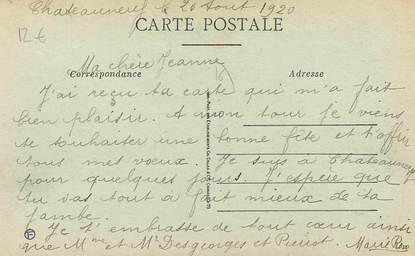 Chateauneuf le 20 Aout 1920
12 €
CARTE POSTALE
Ma chère Jeanne
Correspondance Adresse
J'ai reçu ta carte qui m'a fait
bien plaisir. A mon tour je viens
te souhaiter une bonne fête et t'offrir
tous mes vœux. Je suis à Chateauneuf
pour quelques jours. J'espère que
tu vas tout à fait mieux de ta
jambe.
Je t'embrasse de tout cœur ainsi
que Mme et Mr Desgeorges et Pierrot. Marie Rose